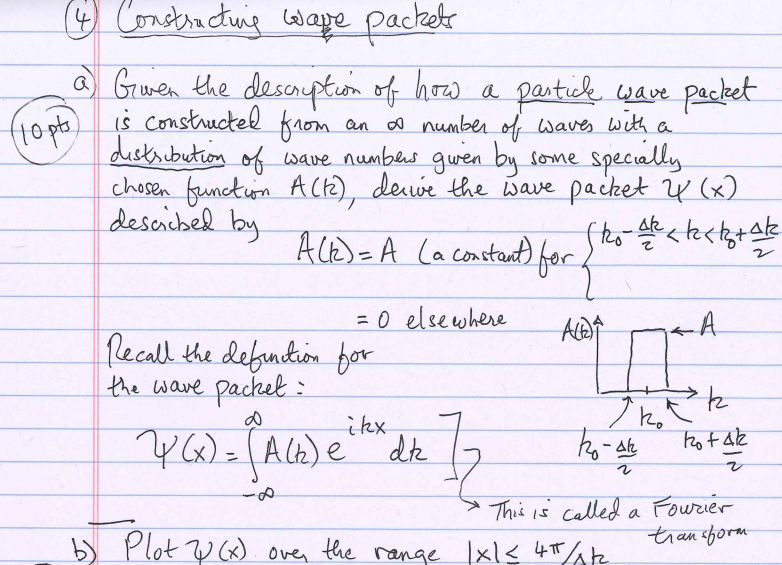 ④ Constructing wave packets
a) Given the description of how a particle wave packet
10 pts
is constructed from an ∞ number of waves with a
distribution of wave numbers given by some specially
chosen function A(k), derive the wave packet Ψ(x)
described by
A(k) = A (a constant) for { k₀ - Δk/2 < k < k₀ + Δk/2
= 0 elsewhere
A(k) ← A
k
k₀
k₀ - Δk/2 k₀ + Δk/2
Recall the definition for
the wave packet :
Ψ(x) = ∫_{-∞}^{∞} A(k) e^{ikx} dk ]
→ This is called a Fourier
transform
b) Plot Ψ(x) over the range |x| ≤ 4π/Δk